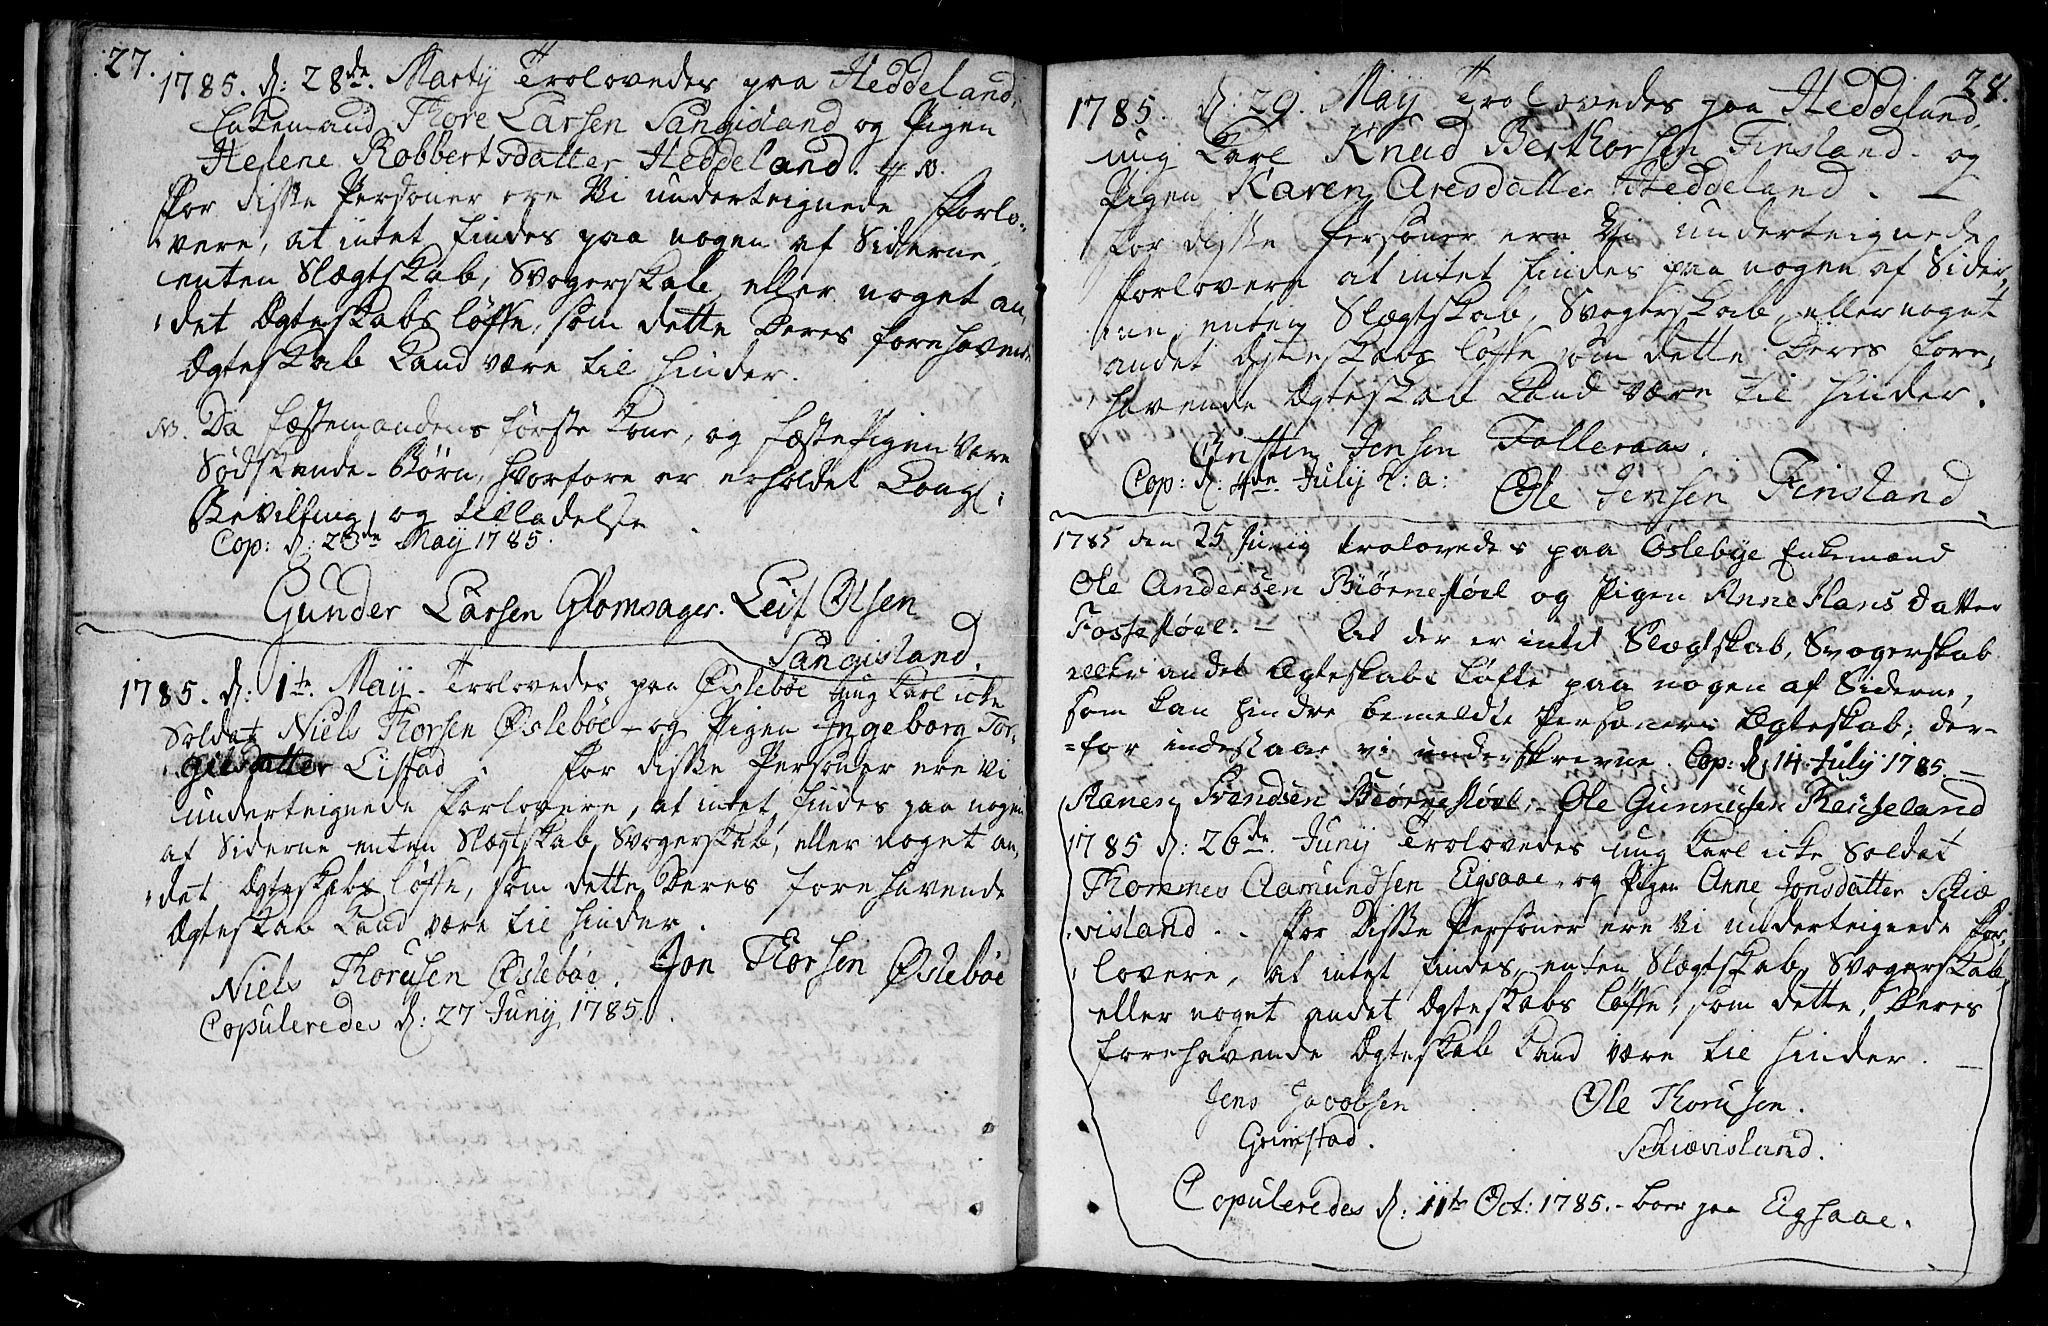 27.
1785. d: 28de. Martij Trolovedes paa Heddeland,
Enkemand Thore Larsen Sangisland og Pigen
Helene Robbertsdatter Heddeland. NB.
For disse Personer ere Vi underteignede Forlo-
vere, at intet findes paa nogen af Siderne,
enten Slægtskab, Svogerskab eller noget an-
det Ægteskabs løfte, som dette Deres forehavende
Ægteskab kand være til hinder.
NB. Da fæstemandens første Kone, og fæstePigen vare
Södskende-Børn, hvorfore er erholdet Kongl:
Bevilling og tilladelse.
Cop: d: May 1785.
Gunder Larsen Glomsager. Leif Olsen
Sangisland.
1785. d: 1te. Maij. Trolovedes paa Øslebøe ung Karl icke
Soldat Niels Thorsen Øslebøe - og Pigen Ingeborg Tor-
gilsdatter Listad. For disse Personer ere Vi
underteignede Forlovere, at intet findes paa nogen
af Siderne enten Slægtskab, Svogerskab, eller noget an-
det Ægteskabs løfte, som dette Deres forehavende
Ægteskab kand være til hinder.
Niels Thorusen Øslebøe. Jon Thorsen Øslebøe
Copuleredes d: 27 Junij 1785.
28.
1785. d: 29. Maij Trolovedes paa Heddeland,
ung Karl Knud Berthorsen Finsland - og
Pigen Karen Aresdatter Heddeland. -
for disse Personer ere Vi underteignede
Forlovere at intet findes paa nogen af Sider-
ne, enten Slægtskab, Svogerskab, eller noget
andet Ægteskabs løfte som dette Deres fore-
havende Ægteskab kand være til hinder.
Jensen Folleraas.
Cop: d: 4de July h: a: Ole Jensen Finsland.
1785 den 25 Junij trolovedes paa Øslebye Enkemand
Ole Andersen Biørnestøel og Pigen Anne Hans datter
Fossestøel. - At der er intet Slægtskab, Svogerskab
eller andet Ægteskabs Løfte paa nogen af Siderne,
som kan hindre bemeldte Personers Ægteskab; der-
=for indestaar vi underskrevne. Cop: d: 14 July 1785. -
Svendsen Biørnestøel, - Ole Gunnusen Reuseland
1785 d: 26de. Junij Trolovedes ung Karl icke Soldat
Thommes Aamundsen Eigsaae, og Pigen Anne Jonsdatter Schiæ
visland. - For Disse Personer ere Vi underteignede For-
lovere, at intet findes, enten Slægtskab, Svogerskab,
eller noget andet Ægteskabs løfte, som dette, Deres
forehavende Ægteskab kand være til hinder.
Jens Jacobsen Ole Thorusen.
Grimstad. Schiævisland.
Copuleredes d: 11te Oct: 1785. - boer paa Eigsaae.